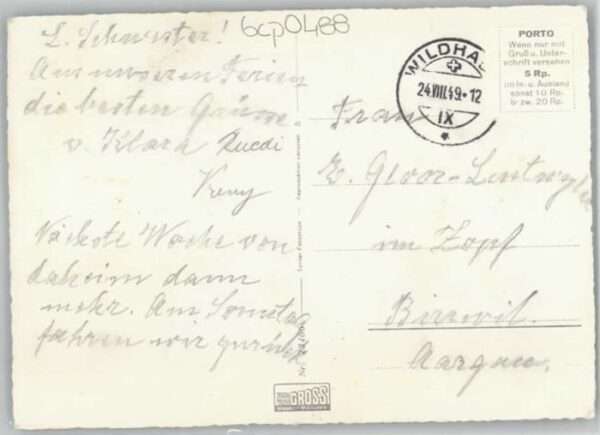 L. Schwester!
bcp0488
Aus unseren Ferien
die besten Grüsse
v. Klara Ruedi
Nächste Woche von
daheim dann
mehr. Am Sonntag
fahren wir zurück
WILDHA
24.VIII.49.-12
IX
PORTO
Wenn nur mit
Gruß u. Unter-
schrift versehen
5 Rp.
im In- u. Ausland
sonst 10 Rp.
bzw. 20 Rp.
Frau
E. Gloor-Lentwyler
im Zopf
Birrwil.
Aargau.
GROSS